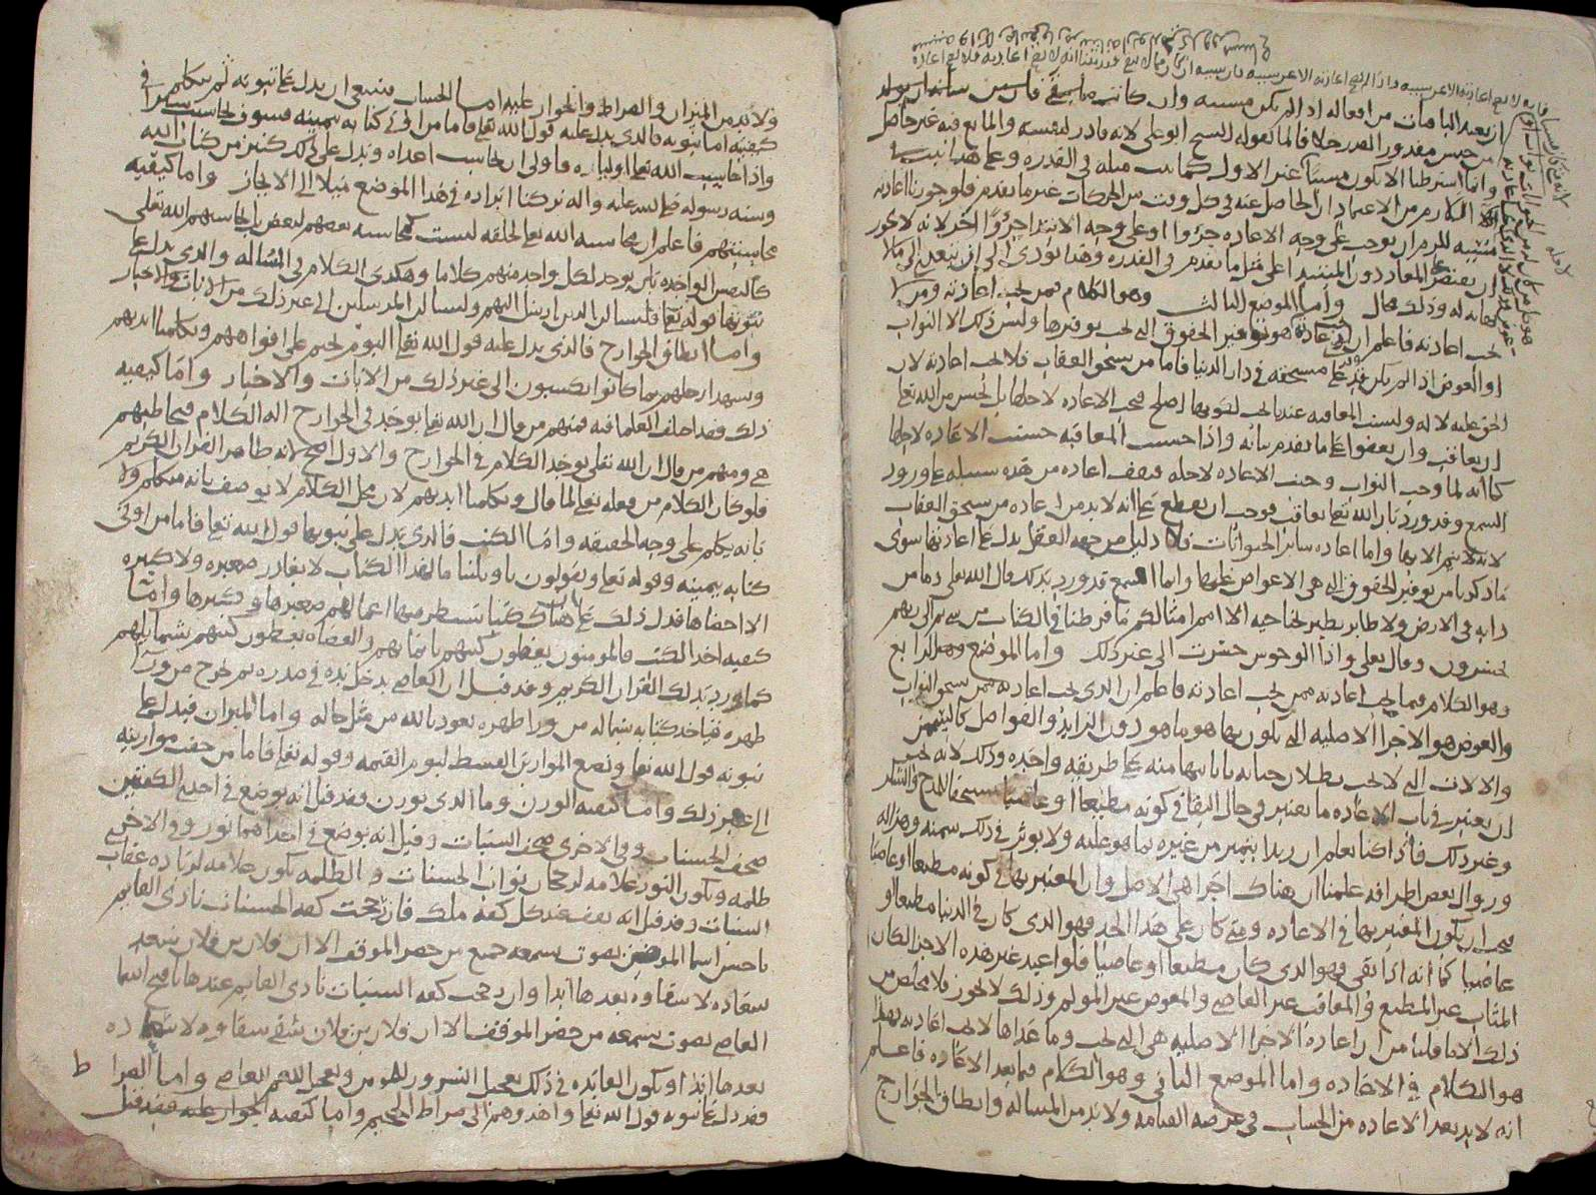 ان يعيد الباقيات من افعاله اذا لم يكن مسببه وان كانت
من جنس مقدور القدر خلافا لما يقوله الشيخ ابو علي لانه قادر لنفسه والمانع فيه غير حاصل
وانما اشترطنا الا يكون مسببا عن الاول
اللازم من الاعتماد ان الحاصل عنه في كل وقت من الحركات غير ما تقدم فلو جوزنا اعادته
للزم ان يوجب على وجه الاعاده جزؤا وعلى وجه الابتدا جزؤا اخر لانه لا يجوز
ان يقتصر المعاد دون المبتدا على مثل ما تقدم في القدره وهذا يؤدي الى ان يتعدى الى ما لا
نهايه له وذلك محال واما الموضع الثالث وهو الكلام فمن يجب اعادته ومن لا
يجب اعادته فاعلم ان هو توفير الحقوق التي يجب توفيرها وليس ذلك الا الثواب
او العوض اذا لم يكن قد مستحقه في دار الدنيا فاما من يستحق العقاب فلا يجب اعادته لان
الحق عليه لا له وليست المعاقبه عندنا يجب
ان يعاقب وان يعفوا على ما تقدم بيانه واذا حسنت المعاقبه حسنت الاعاده لاجلها
كما انه لما وجب الثواب وجبت الاعاده لاجله فيقف اعاده من هذه سبيله على ورود
السمع وقد ورد بان الله تعالى يعاقب فوجب ان يقطع على انه لا بد من اعاده من يستحق العقاب
لانه لا يتم الا بها واما اعاده سائر الحيوانات فلا دليل من جهه العقل يدل على اعادتها سوى
ما ذكرنا من توفير الحقوق التي هي الاعواض عليها وانما السمع قد ورد بذلك قال الله تعالى وما من
دابه في الارض ولا طاير يطير بجناحيه الا امم امثالكم ما فرطنا في الكتاب من شي ثم الى ربهم
يحشرون وقال تعالى واذا الوحوش حشرت الى غير ذلك واما الموضع الرابع
وهو الكلام فيما يجب اعادته ممن يجب اعادته فاعلم ان الذي يجب اعادته ممن يستحق الثواب
والعوض هو الاجزا الاصليه التي يكون بها هو ما هو دون الزايد والفواضل كالسمن
والالات التي لا يجب بطلان حياته بابانتها منه على طريقه واحده وذلك لانه يجب
ان يعتبر في باب الاعاده ما يعتبر في حال البقا في كونه مطيعا او عاصيا مستحقا للمدح والذم
وغير ذلك فاذا كنا نعلم ان زيدا يتميز من غيره بما هو عليه ولا يوثر في ذلك سمنه وهزاله
وزوال بعض اطرافه علمنا ان هناك اجزا هي الاصل وان المعتبر بها في كونه مطيعا او عاصيا
فيجب ان يكون المعتبر بها في الاعاده ومتى كان على هذا الحد فهو الذي كان في الدنيا مطيعا او
عاصيا كما انه اذا بقي فهو الذي كان مطيعا او عاصيا فلو اعيد غير هذه الاجزا لكان
المثاب غير المطيع والمعاقب غير العاصي والمعوض غير المولم وذلك لا يجوز فلا مخلص من
ذلك الا ما قلنا من ان اعاده الاجزا الاصليه هي التي تجب وما عداها لا يجب اعادته فهذا
هو الكلام في الاعاده واما الموضع الثاني وهو الكلام فيما بعد الاعاده فاعلم
انه لا بد بعد الاعاده من الحساب في عرصه القيامه ولا بد من المساله وانطاق الجوارح
ولا بد من الميزان والصراط والجواز عليه اما الحساب فينبغي ان يدل على ثبوته ثم يتكلم في
كيفيته اما ثبوته فالذي يدل عليه قول الله تعالى فاما من اوتي كتابه بيمينه فسوف يحاسب حسابا يسيرا
واذا حاسب الله تعالى اولياءه فاولى ان يحاسب اعداه ويدل على ذلك كثير من كتاب الله
وسنه رسوله صلى الله عليه واله تركنا ايراده في هذا الموضع ميلا الى الايجاز واما كيفيه
محاسبتهم فاعلم ان محاسبه الله تعالى لخلقه ليست كمحاسبه بعضهم لبعض بل يحاسبهم الله تعالى
كالنفس الواحده بان يوجد لكل واحد منهم كلاما وهكذى الكلام في المساله والذي يدل على
ثبوتها قوله تعالى فلنسالن الذين ارسل اليهم ولنسالن المرسلين الى غير ذلك من الايات والاخبار
واما انطاق الجوارح فالذي يدل عليه قول الله تعالى اليوم نختم على افواههم وتكلمنا ايديهم
وتشهد ارجلهم بما كانوا يكسبون الى غير ذلك من الايات والاخبار واما كيفيه
ذلك فقد اختلف العلما فيه فمنهم من قال ان الله تعالى يوجد في الجوارح اله الكلام فيخاطبهم
هي ومنهم من قال ان الله تعالى يوجد الكلام في الجوارح والاول اصح لانه ظاهر القران الكريم
فلو كان الكلام من فعله تعالى لما قال وتكلمنا ايديهم لان محل الكلام لا يوصف بانه متكلم ولا
بانه يكلم على وجه الحقيقه واما الكتب فالذي يدل على ثبوتها قول الله تعالى فاما من اوتي
كتابه بيمينه وقوله تعالى ويقولون يا ويلتنا ما لهذا الكتاب لا يغادر صغيره ولا كبيره
الا احصاها فدل ذلك على ان هناك كتبا تسطر فيها اعمالهم صغيرها وكبيرها واما
كيفيه اخذ الكتب فالمومنون يعطون كتبهم بايمانهم والعصاه يعطون كتبهم بشمايلهم
كما ورد بذلك القران الكريم وقد قيل ان العاصي يدخل يده في صدره ثم تخرج من ورا
ظهره فياخذ كتابه بشماله من ورا ظهره نعوذ بالله من مثل حاله واما الميزان فيدل على
ثبوته قول الله تعالى ونضع الموازين القسط ليوم القيمه وقوله تعالى فاما من خفت موازينه
الى غير ذلك واما كيفيه الوزن وما الذي يوزن فقد قيل انه يوضع في احدى الكفتين
صحف الحسنات وفي الاخرى صحف السيئات وقيل انه يوضع في احداهما نور وفي الاخرى
ظلمه ويكون النور علامه لرجحان ثواب الحسنات والظلمه تكون علامه لزياده عقاب
السيئات وقد قيل انه يقف عند كل كفه ملك فان رجحت كفه الحسنات نادى القايم
باحسن اسما المومنين بصوت يسمعه جميع من حضر الموقف الا ان فلان بن فلان سعد
سعاده لا شقاوه بعدها ابدا وان رجحت كفه السيئات نادى القايم عندها باقبح اسما
العاصي بصوت يسمعه من حضر الموقف الا ان فلان بن فلان شقي شقاوه لا سعاده
بعدها ابدا ويكون الفايده في ذلك تعجيل السرور للمومن وتعجيل الغم للعاصي واما الصراط
فقد دل على ثبوته قول الله تعالى واهدوهم الى صراط الجحيم واما كيفيه الجواز عليه فقد قيل